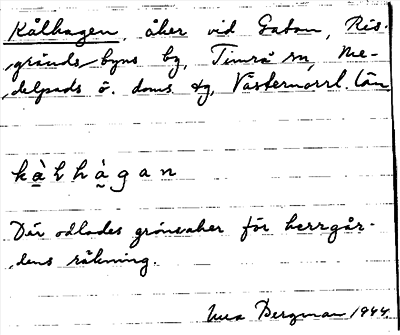 Kålhagen, åker vid Gatan, Ris-
gränds byns by, Timrå sn, Me-
delpads ö. doms. tg, Västernorrl. län
kàLhàgan
Där odlades grönsaker för herrgår-
dens räkning.
Bergman 1944